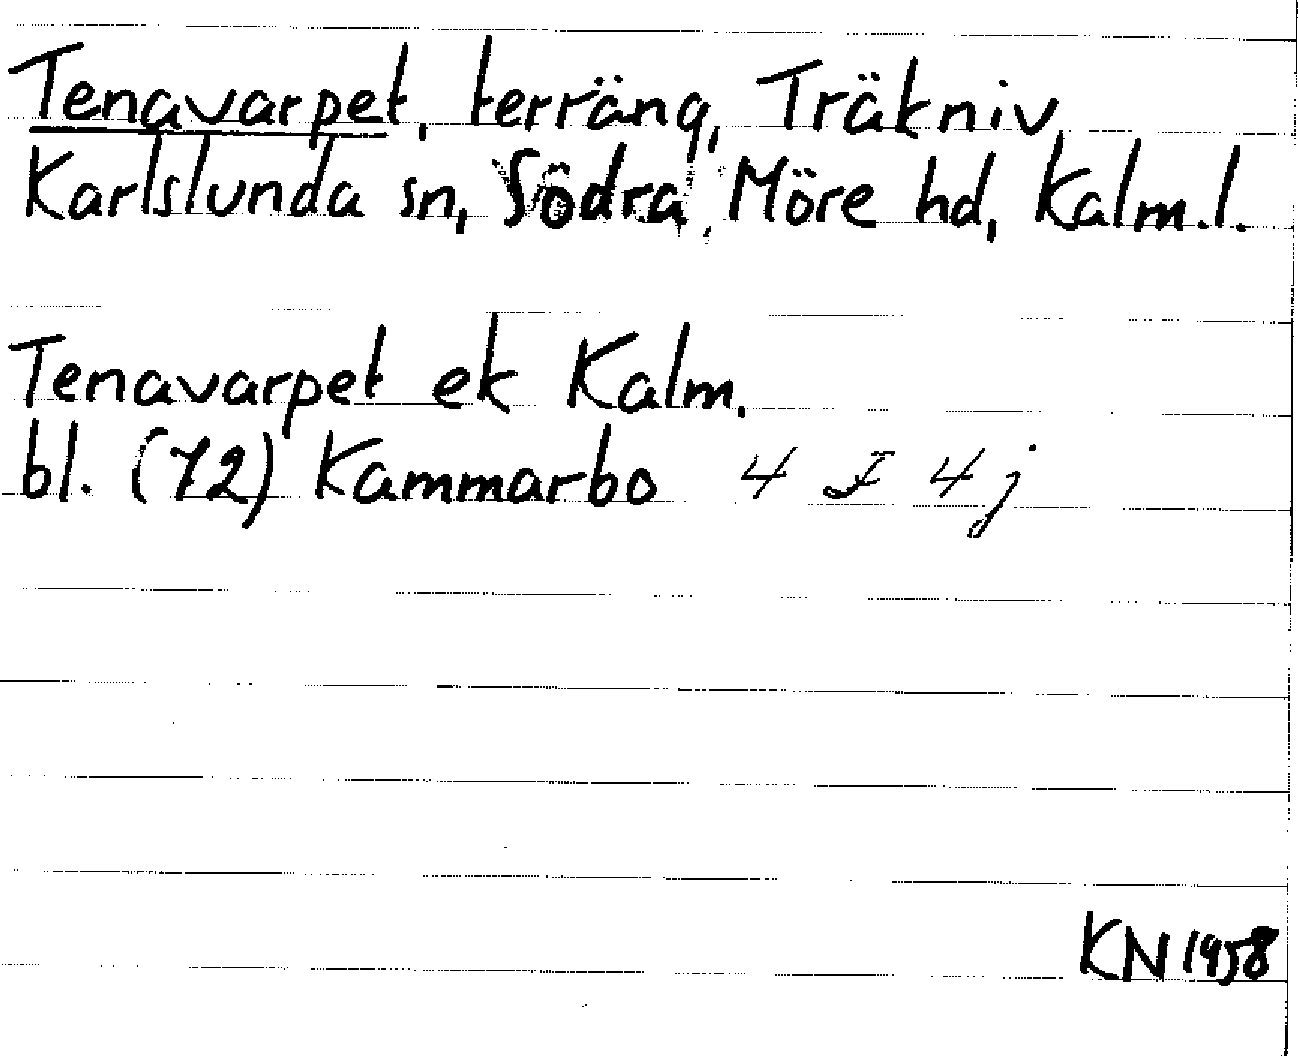 Tenavarpet, terräng, Träkniv,
Karlslunda sn, Södra Möre hd, Kalm.l.
Tenavarpet ek Kalm.
bl. (72) Kammarbo 4 F 4j
KN 1958